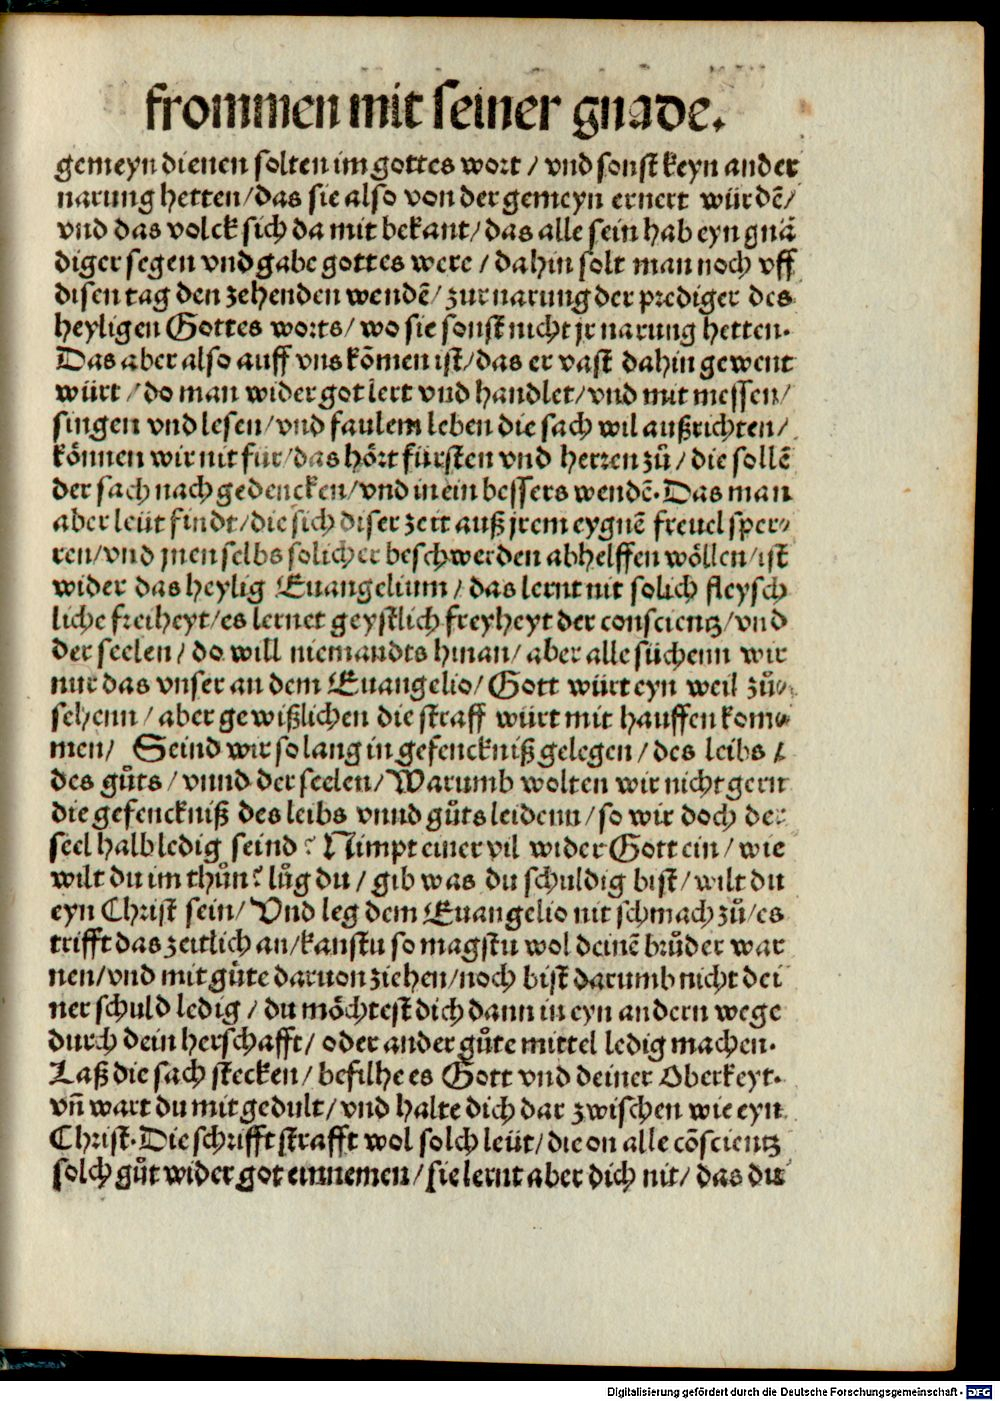 frommen mit seiner gnade.
gemeyn dienen solten im gottes wort / vnd sonst keyn ander
narung hetten/das sie also von der gemeyn ernert würdē/
vnd das volck sich da mit bekant/das alle sein hab eyn gnä
diger segen vnd gabe gottes were / dahin solt man noch vff
disen tag den zehenden wendē/ zur narung der prediger des
heyligen Gottes worts/ wo sie sonst nicht jr narung hetten.
Das aber also auff vns kōmen ist/das er vast dahin gewent
würt /do man wider got lert vnd handlet/vnd mit messen/
singen vnd lesen/vnd faulem leben die sach wil außrichten/
können wir nit für/das hört fürsten vnd herren zů/ die sollē
der sach nach gedencken/vnd in ein bessers wendē. Das man
aber leüt findt/die sich diser zeit auß jrem eygnē freuel sper-
ren/vnd jnen selbs solicher beschwerden abhelffen wöllen/ist
wider das heylig Euangelium / das lernt nit solich fleysch
liche freiheyt/es lernet geystlich freyheyt der conscientz/vnd
der seelen/ do will niemandts hinan/ aber alle süchenn wir
nur das vnser an dem Euangelio/ Gott würt eyn weil zů-
sehenn / aber gewißlichen die straff würt mit hauffen kom-
men/ Seind wir so lang in gefenckniß gelegen/ des leibs /
des gůts / vnnd der seelen/ Warumb wolten wir nicht gern
die gefenckniß des leibs vnnd gůts leidenn/ so wir doch der
seel halb ledig seind? Nimpt einer vil wider Gott ein/ wie
wilt du im thůn? lůg du/ gib was du schuldig bist/ wilt du
eyn Christ sein/ Vnd leg dem Euangelio nit schmach zů/es
trifft das zeitlich an/kanstu so magstu wol deinē brůder war
nen/vnd mit gůte daruon ziehen/noch bist darumb nicht dei
ner schuld ledig / du möchtest dich dann in eyn andern wege
durch dein herschafft/ oder ander gůte mittel ledig machen.
Laß die sach stecken/ befilhe es Gott vnd deiner Oberkeyt.
vn̄ wart du mit gedult/ vnd halte dich dar zwischen wie eyn
Christ. Die schrifft strafft wol solch leüt/ die on alle cōscientz
solch gůt wider got einnemen/ sie lernt aber dich nit/ das du
Digitalisierung gefördert durch die Deutsche Forschungsgemeinschaft - DFG